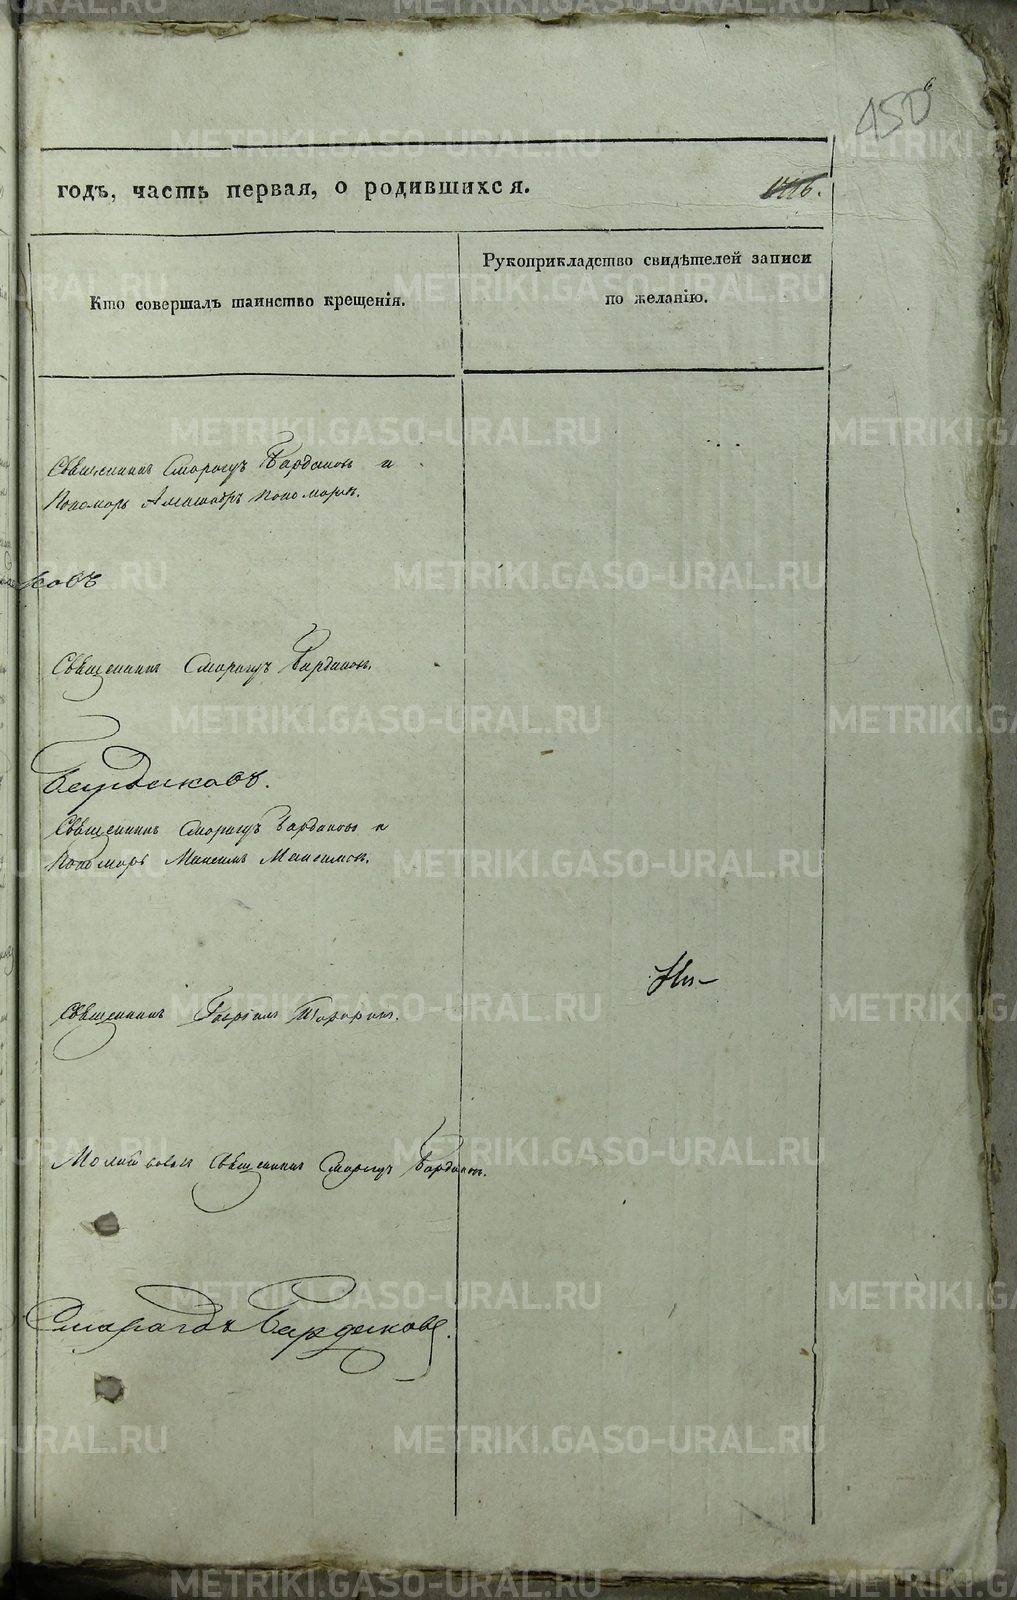 450
6
годъ, часть первая, о родившихся.
Кто совершалъ таинство крещенія.
Рукоприкладство свидѣтелей записи
по желанію.
Священникъ Смарагдъ Бардаковъ и
Пономарь Александръ Пономаревъ.
ковъ
Священникъ Смарагдъ Бардаковъ.
Бардаковъ.
Священникъ Смарагдъ Бардаковъ и
Пономарь Максимъ Максимовъ.
Священникъ Гавріилъ
Священникъ Смарагдъ Бардаковъ.
Смарагдъ Бардаковъ.
METRIKI.GASO-URAL.RU